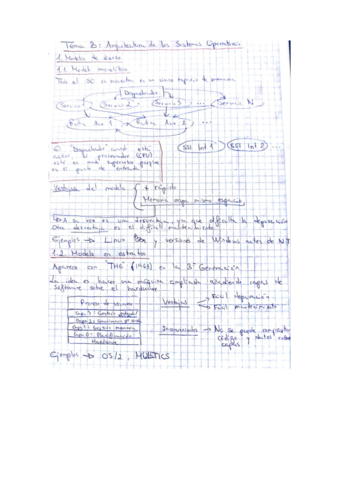 Tema 8: Arquitectura de los Sistemas Operativos
1. Modelos de diseño
1.1. Modelo monolítico
Todo el SO se encuentra en un único espacio de memoria
Despachador
Servicio 1 Servicio 2 Servicio 3 ... Servicio N
Rutina Aux 1 Rutina Aux 2 ...
El "Despachador" cuando está
activo, el procesador (CPU)
está en modo supervisor porque
es el punto de entrada
SSI Int 1 SSI Int 2 ...
Ventajas del modelo + rápido
Memoria ocupa mismo espacio
A su vez es una desventaja, ya que dificulta la depuración
Otra desventaja es el difícil mantenimiento
Ejemplos → Linux y versiones de Windows antes de NT
1.2. Modelo en estratos
Aparece con "THE" (1968) en la 3ª Generación
La idea es hacer una máquina ampliada añadiendo capas de
software sobre el hardware
Procesos de usuario
Capa 3: Gestión
Capa 2:
Capa 1: Gestión memoria
Capa 0: Planificación
Hardware
Ventajas → Fácil depuración
→ Fácil mantenimiento
Inconvenientes → No se puede compartir
código y datos entre
capas
Ejemplos → OS/2, MULTICS